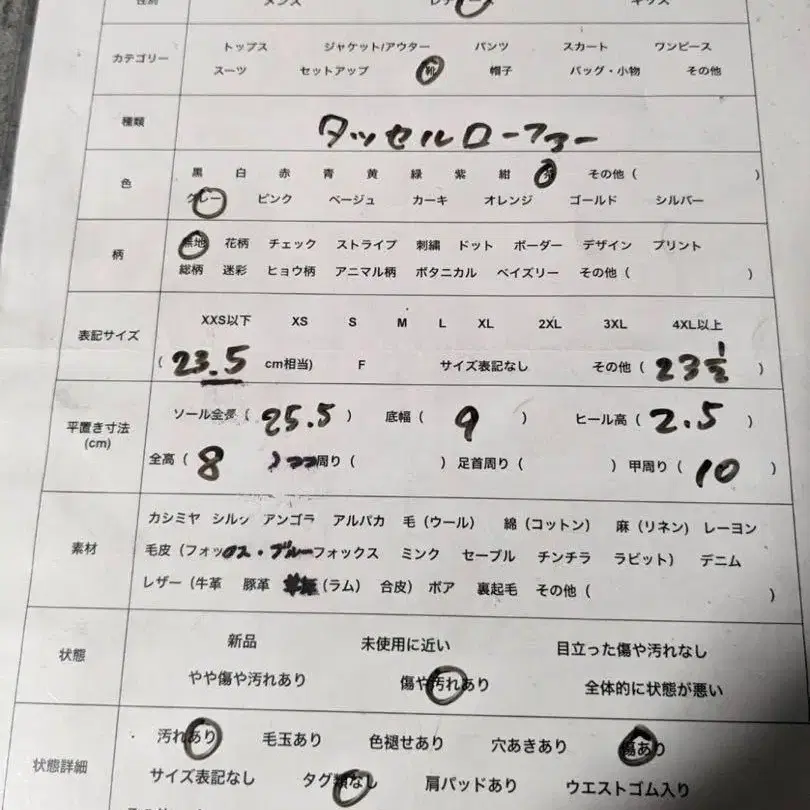 性別 メンズ レディース キッズ
カテゴリー
トップス ジャケット/アウター パンツ スカート ワンピース
スーツ セットアップ 靴 帽子 バッグ・小物 その他
種類 タッセルローファー
色
黒 白 赤 青 黄 緑 紫 紺 茶 その他 ( )
グレー ピンク ベージュ カーキ オレンジ ゴールド シルバー
柄
無地 花柄 チェック ストライプ 刺繍 ドット ボーダー デザイン プリント
総柄 迷彩 ヒョウ柄 アニマル柄 ボタニカル ペイズリー その他 ( )
表記サイズ
XXS以下 XS S M L XL 2XL 3XL 4XL以上
( 23.5 cm相当) F サイズ表記なし その他 ( 23 1/2 )
平置き寸法
(cm)
ソール全長 ( 25.5 ) 底幅 ( 9 ) ヒール高 ( 2.5 )
全高 ( 8 ) 周り ( ) 足首周り ( ) 甲周り ( 10 )
素材
カシミヤ シルク アンゴラ アルパカ 毛 (ウール) 綿 (コットン) 麻 (リネン) レーヨン
毛皮 (フォックス・ブルーフォックス ミンク セーブル チンチラ ラビット) デニム
レザー (牛革 豚革 (ラム) 合皮) ボア 裏起毛 その他 ( )
状態
新品 未使用に近い 目立った傷や汚れなし
やや傷や汚れあり 傷や汚れあり 全体的に状態が悪い
状態詳細
汚れあり 毛玉あり 色褪せあり 穴あきあり 傷あり
サイズ表記なし タグ類なし 肩パッドあり ウエストゴム入り